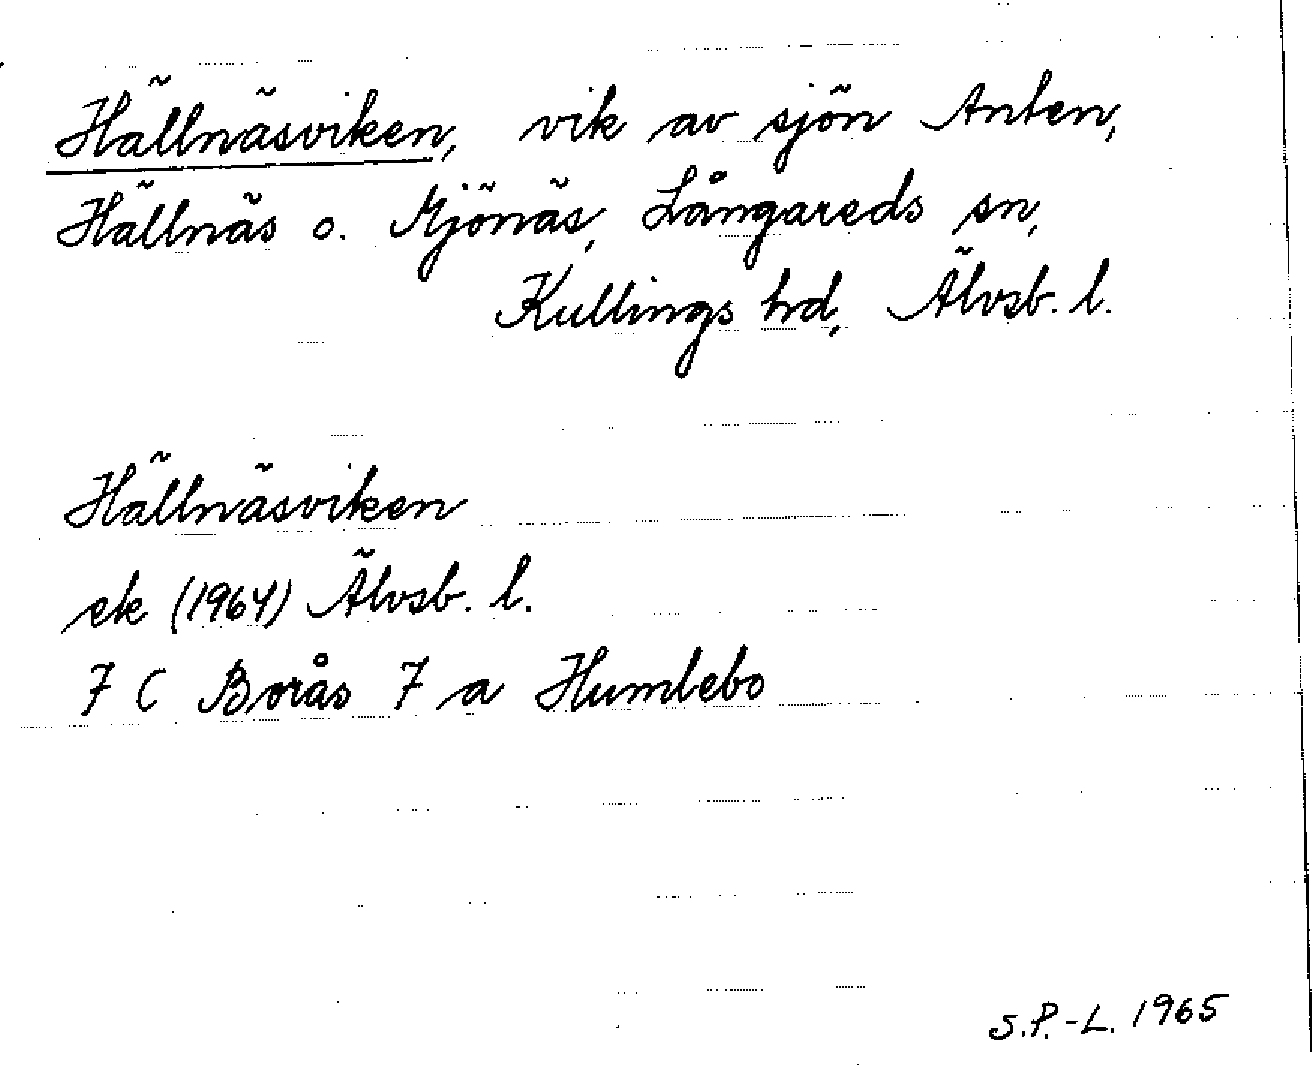 Hällnäsviken, vik av sjön Anten,
Hällnäs o. Mjönäs, Långareds sn,
Kullings hd, Älvsb. l.
Hällnäsviken
ek (1964) Älvsb. l.
7 C Borås 7 a Humlebo
S.P.-L. 1965